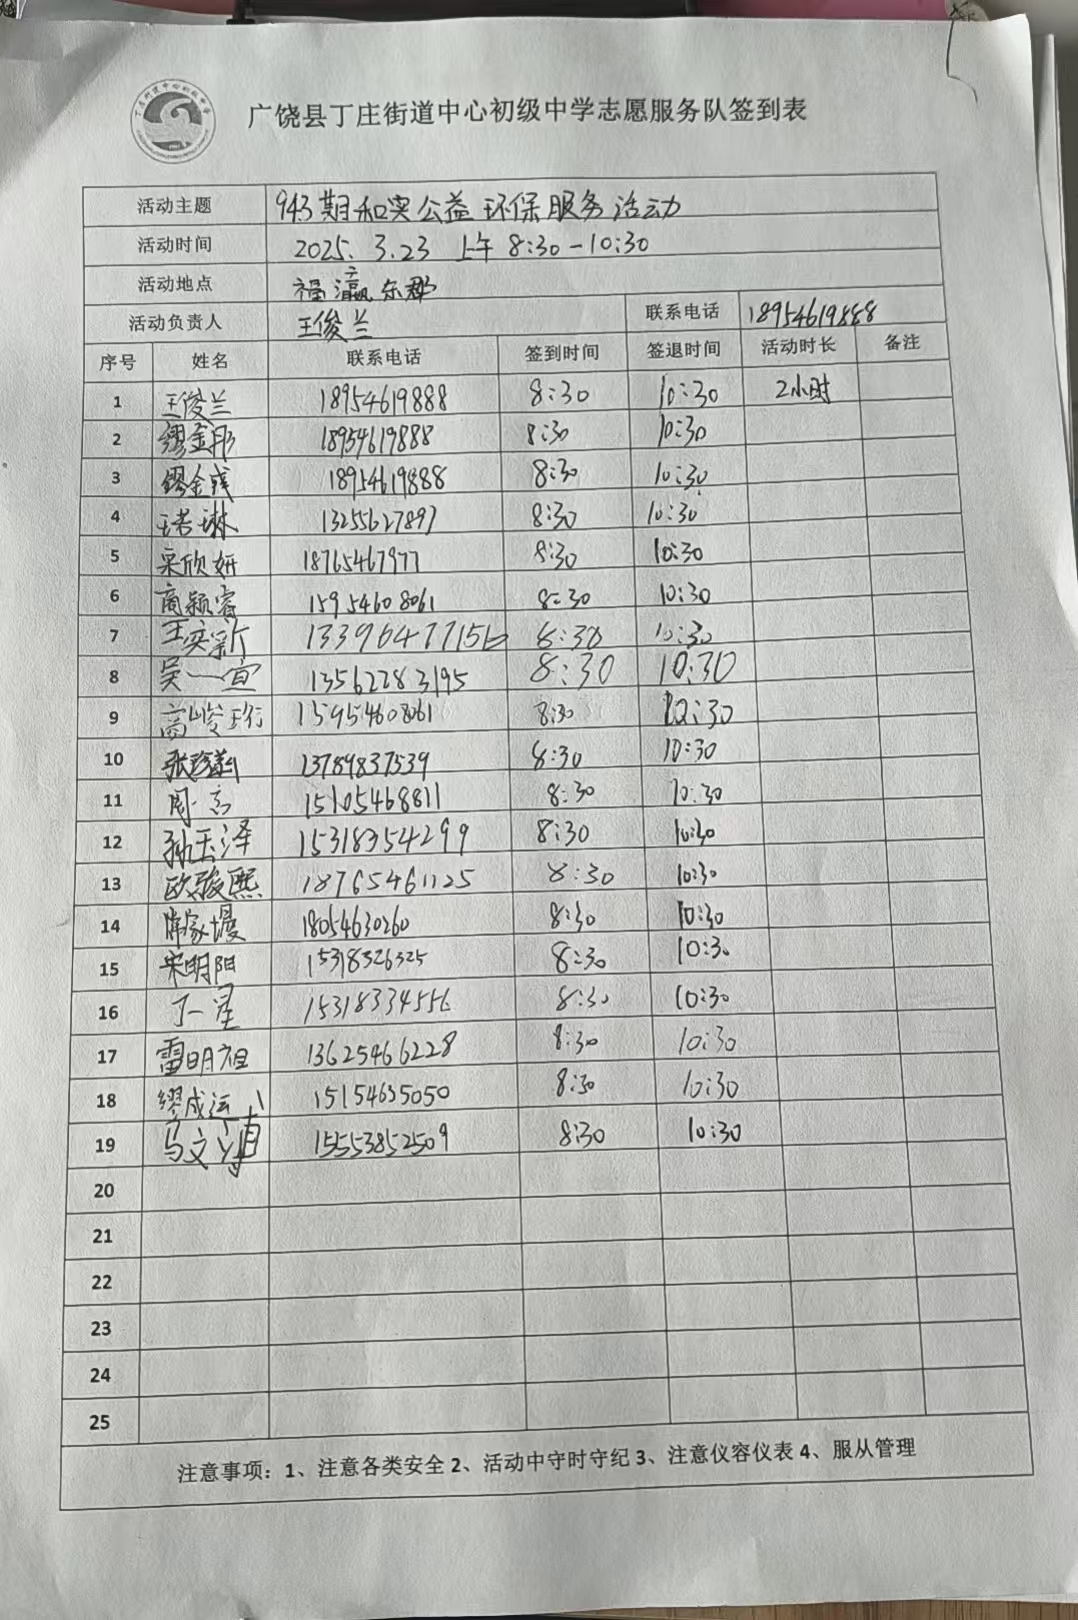 广饶县丁庄街道中心初级中学志愿服务队签到表
活动主题 943期和实公益环保服务活动
活动时间 2025. 3.23 上午 8:30-10:30
活动地点 福瀛东郡
活动负责人 王俊兰 联系电话 18954619888
序号 姓名 联系电话 签到时间 签退时间 活动时长 备注
1 王俊兰 18954619888 8:30 10:30 2小时
2 缪金彤 18954619888 8:30 10:30
3 缪金 18954619888 8:30 10:30
4 琳 13255627897 8:30 10:30
5 宋欣妍 18765467977 8:30 10:30
6 商颖睿 15954608061 8:30 10:30
7 王奕新 13396477156 8:30 10:30
8 吴一宣 13562283195 8:30 10:30
9 高峻珩 15954608061 8:30 10:30
10 张 13789837539 8:30 10:30
11 周 15105468811 8:30 10:30
12 孙玉泽 15318354299 8:30 10:30
13 欧骏熙 18765461125 8:30 10:30
14 家 18054630260 8:30 10:30
15 宋明阳 15318326325 8:30 10:30
16 丁一星 15318334556 8:30 10:30
17 雷明祖 13625466228 8:30 10:30
18 缪成运 15154635050 8:30 10:30
19 马文 15553852509 8:30 10:30
20
21
22
23
24
25
注意事项：1、注意各类安全 2、活动中守时守纪 3、注意仪容仪表 4、服从管理